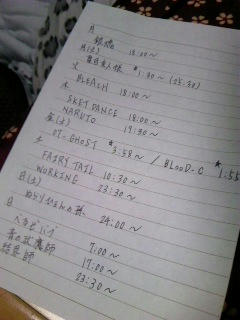 月
銀魂 18:00~
月(土)
夏目友人帳 *1:30~(25:30)
火
BLEACH 18:00~
木
SKET DANCE 18:00~
NARUTO 19:30~
金(土)
07-GHOST *3:58~ / BLOOD-C *1:55
土
FAIRY TAIL 10:30~
WORKING 23:30~
日(土)
ぬらりひょんの孫 24:00~
日
べるぜバブ 7:00~
青の祓魔師 17:00~
結界師 23:30~